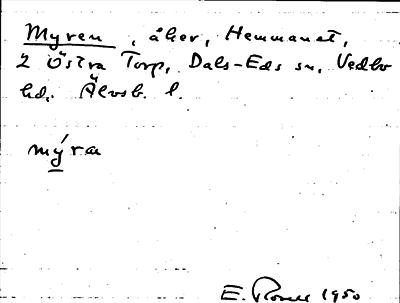 Myren, åker, Hemmanet,
2 Östra Torp, Dals-Eds sn, Vedbo
hd, Älvsb. l.
mýra
E. 1950